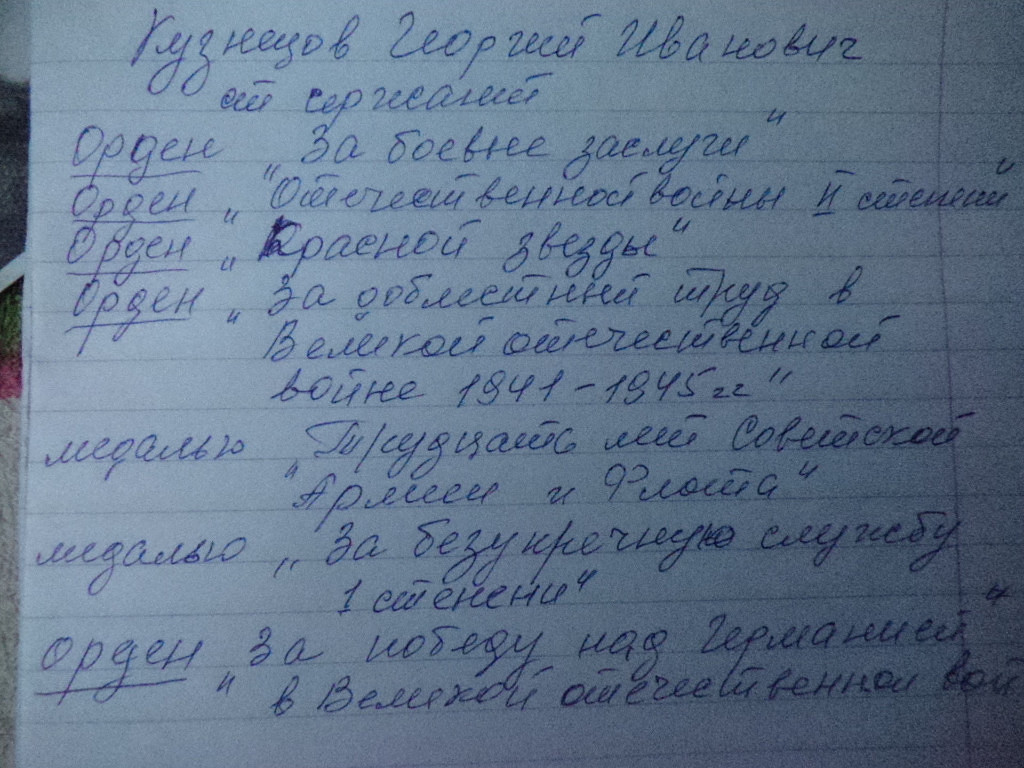 Кузнецов Георгий Иванович
ст сержант
Орден „За боевые заслуги“
Орден „Отечественной войны II степени“
Орден „Красной звезды“
Орден „За доблестный труд в
Великой отечественной
войне 1941-1945гг“
медалью „Трудцать лет Советской
Армии и Флота“
медалью „За безукречную службу
1 степени“
Орден „За победу над Германией“
в Великой отечественной вой